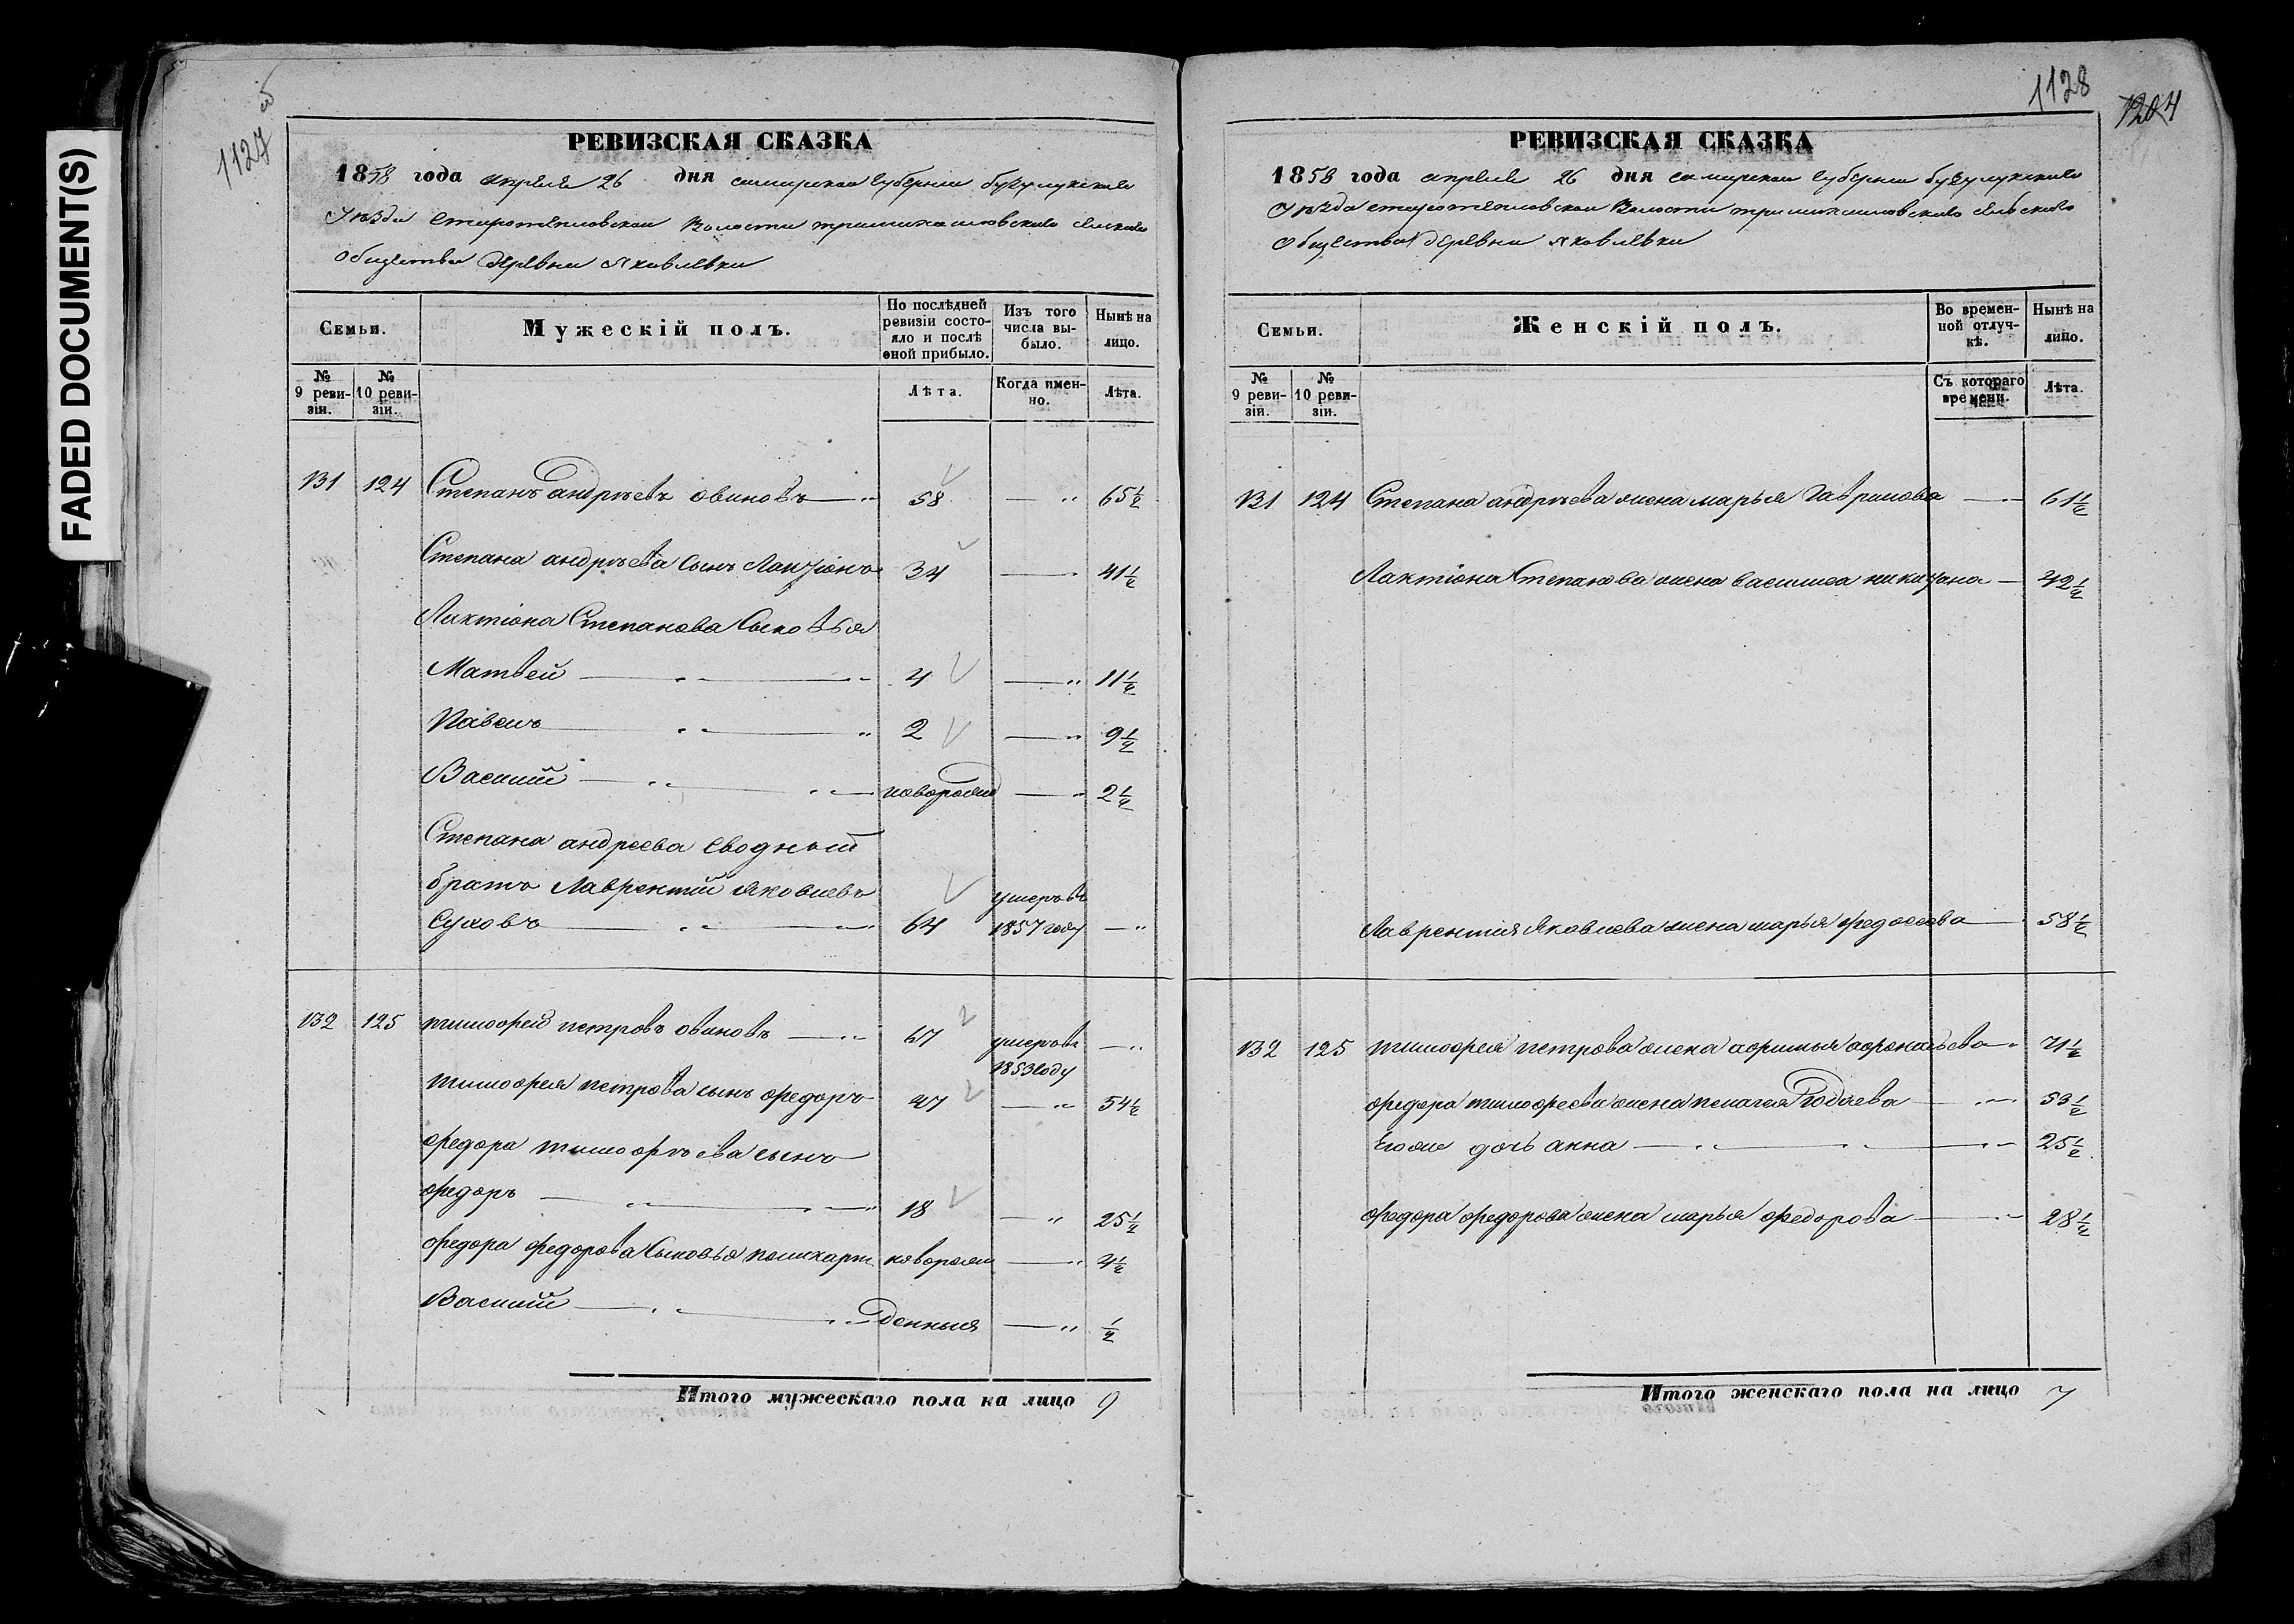 FADED DOCUMENT(S)
1127
РЕВИЗСКАЯ СКАЗКА
1858 года апреля 26 дня самарской губернии бузулукскаго
Уѣзда старотепловской Волости сельскаго
Общества деревни Яковлевки
Семьи.
Мужескій полъ.
По послѣдней ревизіи состояло и послѣ оной прибыло.
Изъ того числа выбыло.
Нынѣ на лицо.
№ 9 ревизіи.
№ 10 ревизіи.
Лѣта.
Когда именно.
Лѣта.
131 124 Степанъ андрѣевъ овиновъ — „ 58 — „ 65 1/2
Степана андрѣева сынъ Лактіонъ 34 — „ 41 1/2
Лактіона Степанова Сыновья
Матвей — „ — „ 4 — „ 11 1/2
Павелъ — „ — „ 2 — „ 9 1/2
Василий — „ — „ — новорожд — „ 2 1/2
Степана андреева сводный
братъ Лаврентий Яковлевъ
Суховъ — „ — „ 64 умеръ въ 1857 году — „
132 125 тимофей петровъ овиновъ — „ 67 умеръ въ 1853 году — „
тимофея петрова сынъ федоръ 47 — „ 54 1/2
федора тимофѣева сынъ
федоръ — „ — „ 18 — „ 25 1/2
федора федорова Сыновья поликарп новорож — „ 4 1/2
Василий — „ — „ денныя — „ 1/2
Итого мужескаго пола на лицо 9
1128
1204
РЕВИЗСКАЯ СКАЗКА
1858 года апреля 26 дня самарской губернии бузулукскаго
Уѣзда старотепловской Волости сельскаго
Общества деревни Яковлевки
Семьи.
Женскій полъ.
Во временной отлучкѣ.
Нынѣ на лицо.
№ 9 ревизіи.
№ 10 ревизіи.
Съ котораго времени.
Лѣта.
131 124 Степана андрѣева жена марья Гаврилова — „ 61 1/2
Лактіона Степанова жена василиса — 42 1/2
Лаврентия Яковлева жена марья федосеева — 58 1/2
132 125 тимофея петрова жена афимья афонасьева „ 71 1/2
федора тимофеева жена пелагея — „ 53 1/2
Его же дочь анна — „ — „ — 25 1/2
федора федорова жена марья федорова — „ 28 1/2
Итого женскаго пола на лицо 7